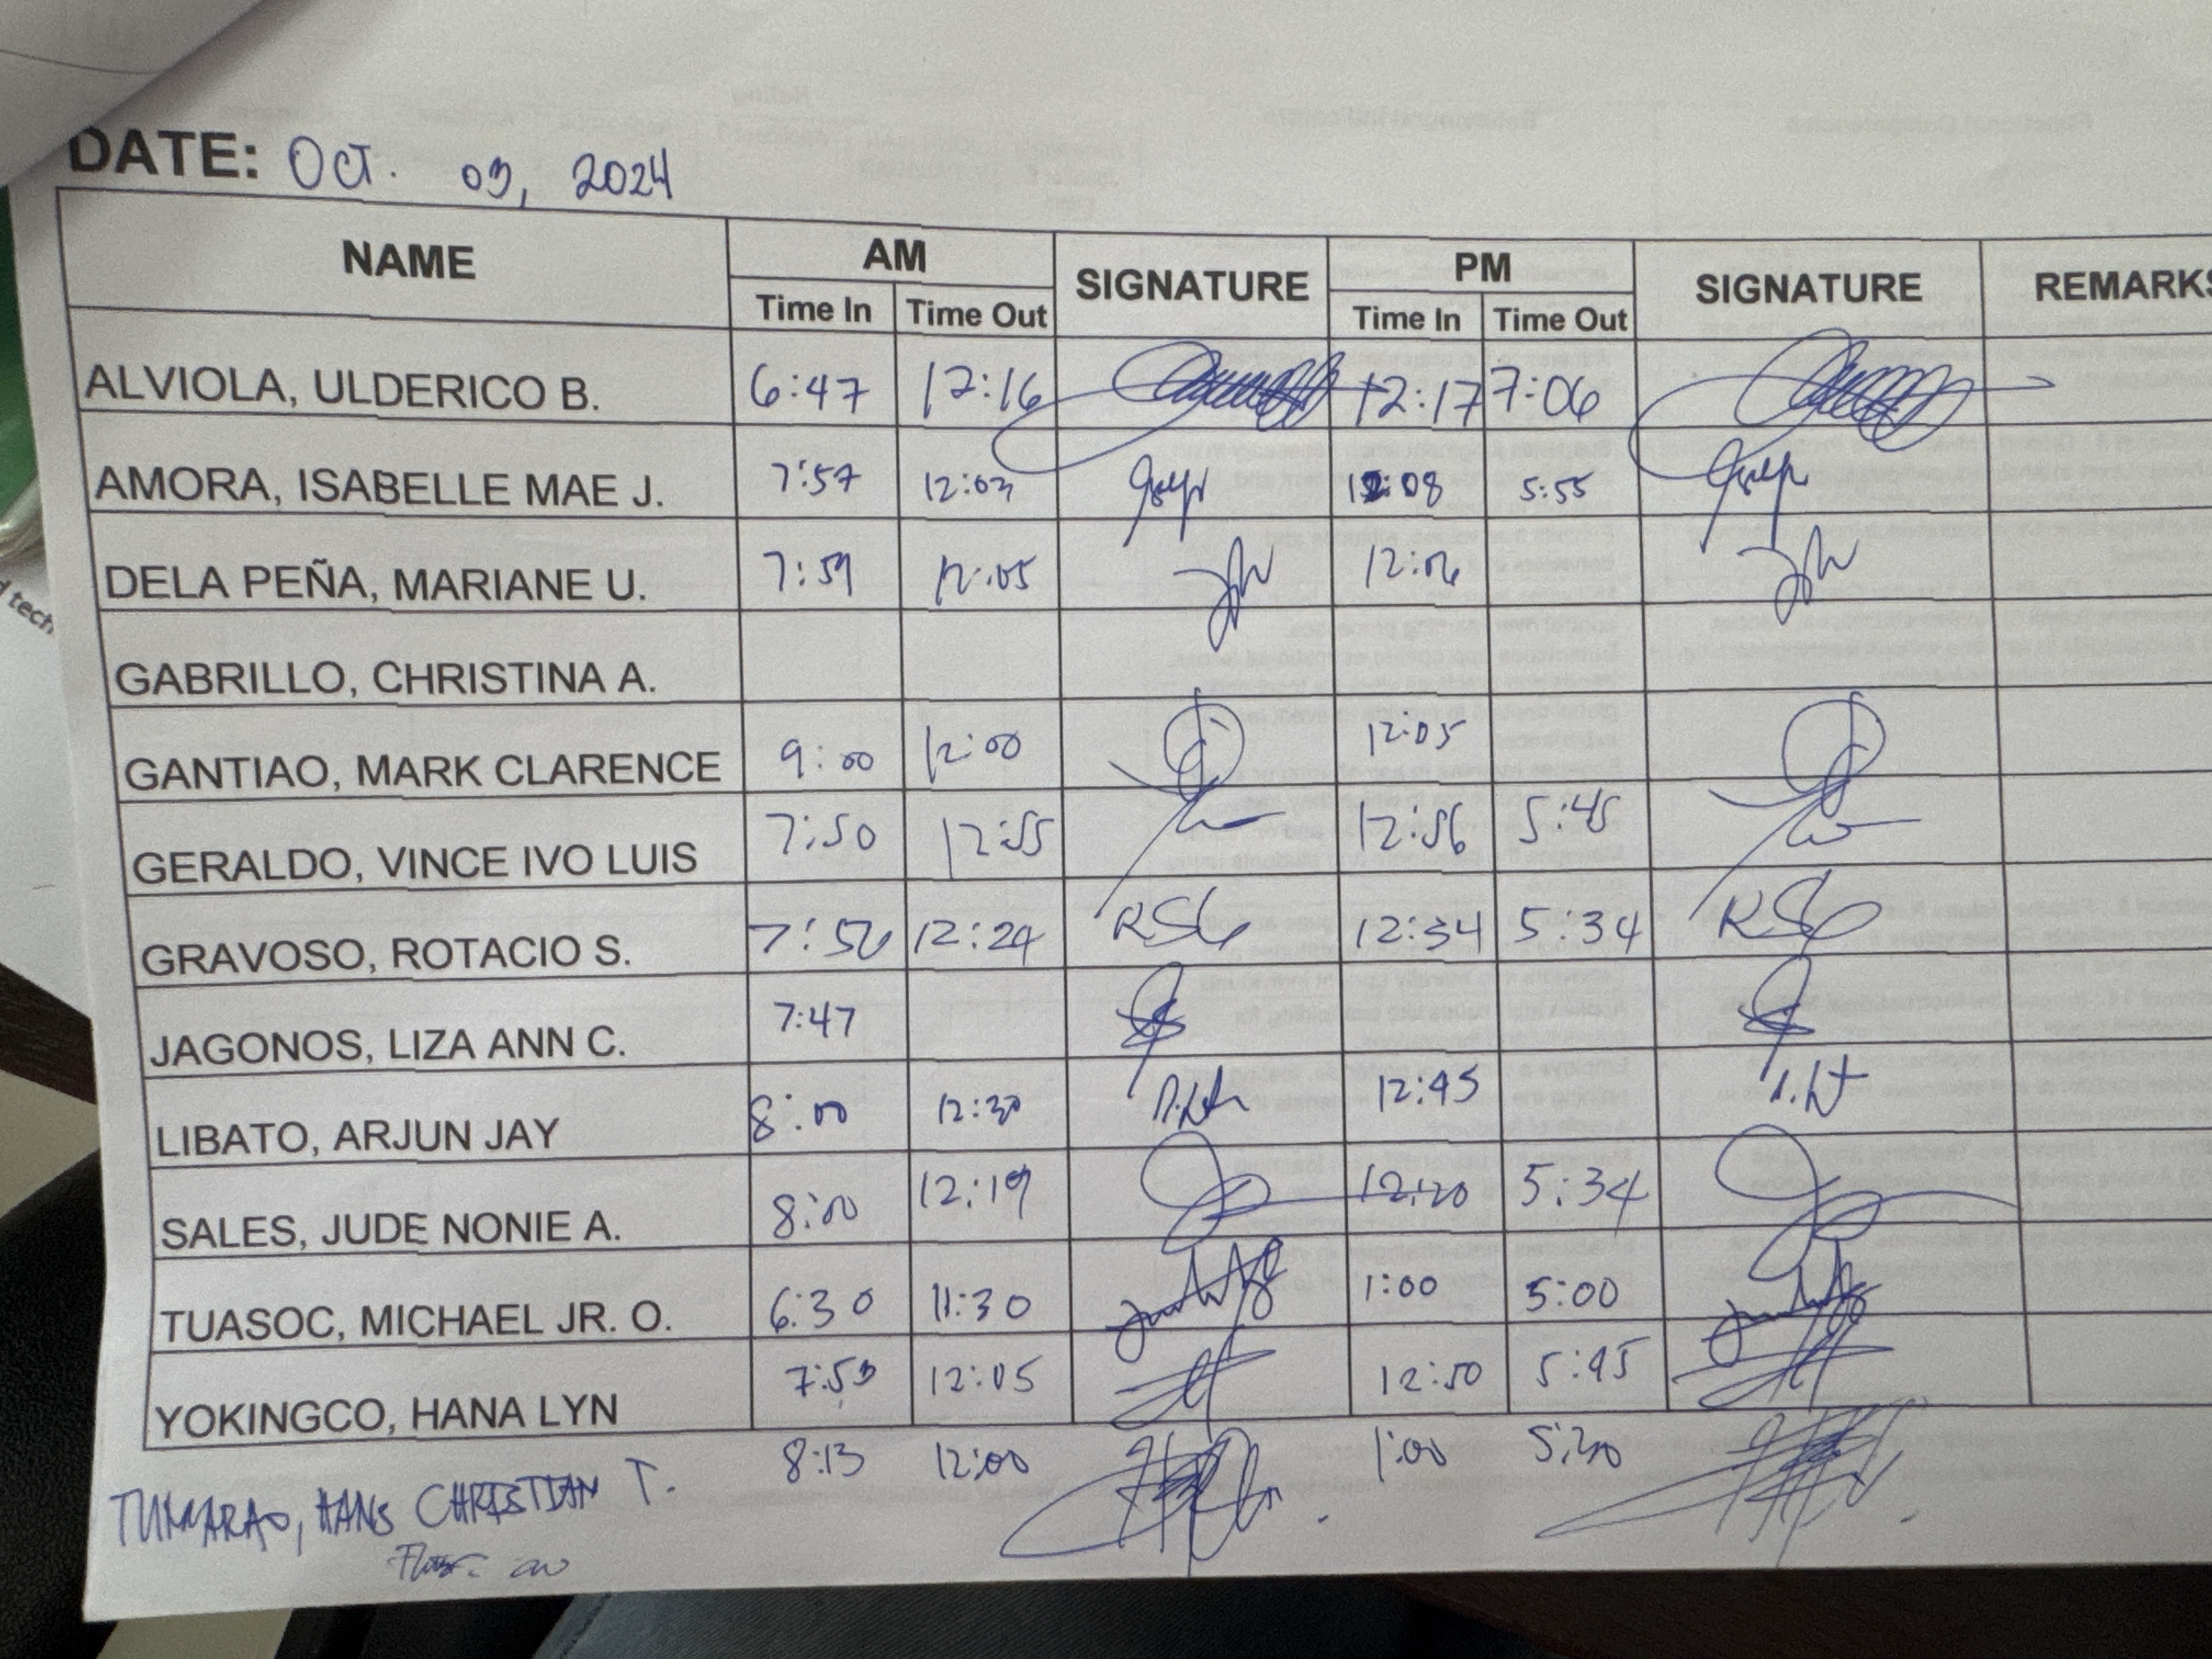 DATE: Oct. 03, 2024
NAME AM SIGNATURE PM SIGNATURE REMARKS
Time In Time Out Time In Time Out
ALVIOLA, ULDERICO B. 6:47 12:16 12:17 7:06
AMORA, ISABELLE MAE J. 7:57 12:03 12:08 5:55
DELA PEÑA, MARIANE U. 7:59 12:05 12:06
GABRILLO, CHRISTINA A.
GANTIAO, MARK CLARENCE 9:00 12:00 12:05
GERALDO, VINCE IVO LUIS 7:50 12:55 12:56 5:45
GRAVOSO, ROTACIO S. 7:56 12:24 RSG 12:34 5:34 RSG
JAGONOS, LIZA ANN C. 7:47
LIBATO, ARJUN JAY 8:00 12:30 12:45
SALES, JUDE NONIE A. 8:00 12:19 12:20 5:34
TUASOC, MICHAEL JR. O. 6:30 11:30 1:00 5:00
YOKINGCO, HANA LYN 7:53 12:05 12:50 5:45
HANS CHRISTIAN T. 8:13 12:00 1:00 5:30
d tech